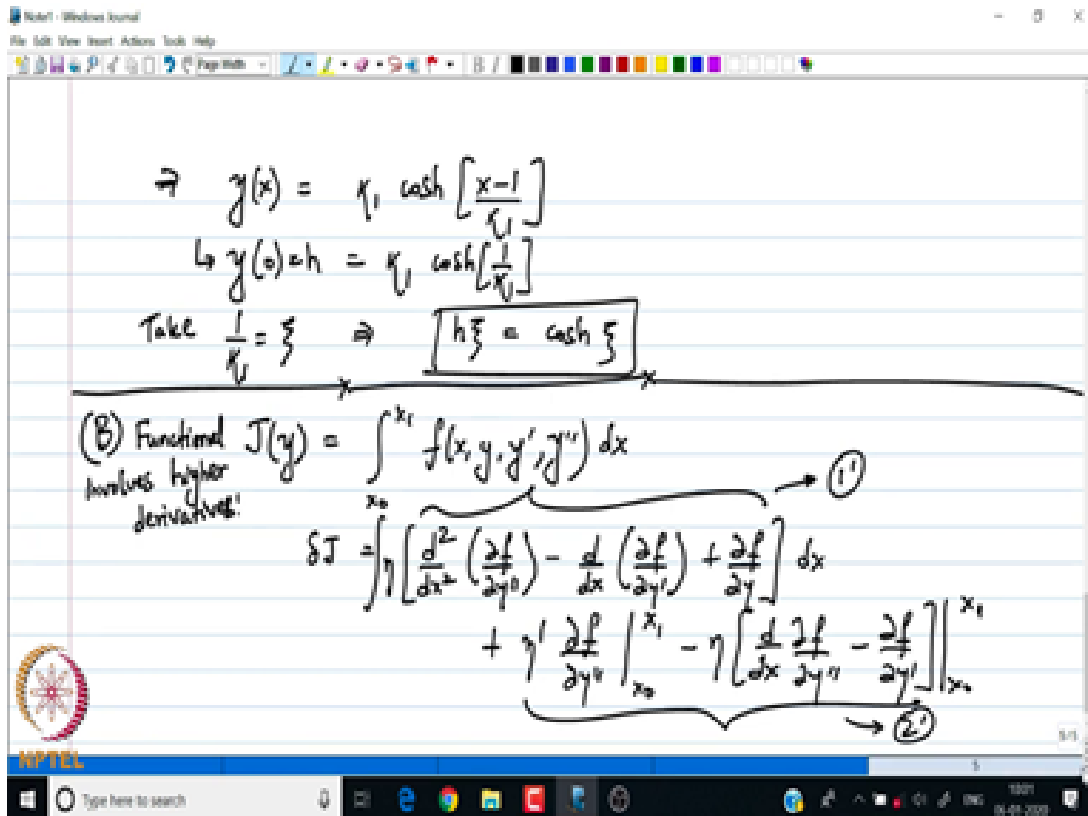 Note1 - Windows Journal
File Edit View Insert Actions Tools Help
Page Width B I
⇒ y(x) = κ₁ cosh [(x-1)/κ₁]
↳ y(0) = h = κ₁ cosh [1/κ₁]
Take 1/κ₁ = ξ ⇒ hξ = cosh ξ
(B) Functional involves higher derivatives: J(y) = ∫_{x₀}^{x₁} f(x, y, y', y'') dx
→ (1')
δJ = ∫ η [ d²/dx² (∂f/∂y'') - d/dx (∂f/∂y') + ∂f/∂y ] dx
+ η' ∂f/∂y'' |_{x₀}^{x₁} - η [ d/dx ∂f/∂y'' - ∂f/∂y' ] |_{x₀}^{x₁}
→ (2')
NPTEL
5/5
5
Type here to search
ENG